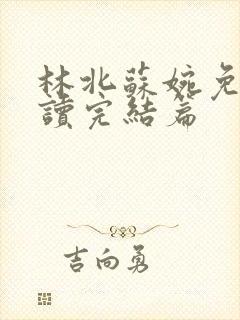 林北蘇婉免
讀完結篇
吉向勇